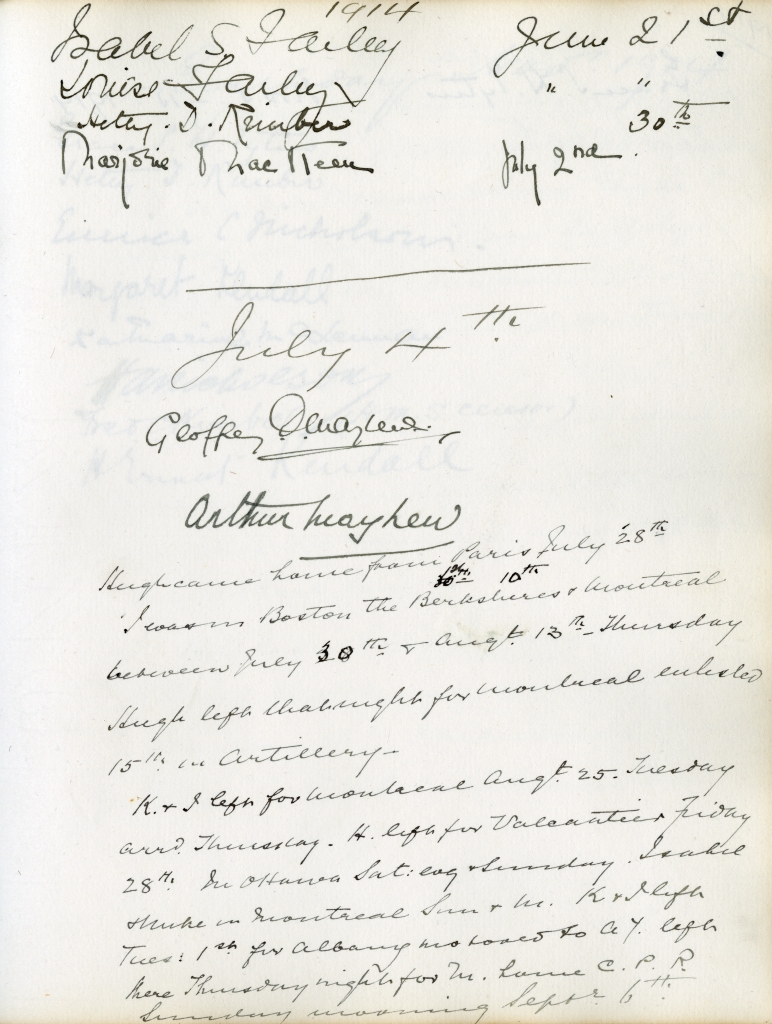 1914
Isabel S. Farley June 21st
Louise Farley " "
Hetty. D. Kimber 30th
Marjorie MacKeen July 2nd.
July 4th
Geoffrey D. Mayhew.
Arthur Mayhew
Hugh came home from Paris July 28th
10th
I was in Boston the Berkshires & Montreal
between July 30th & Augt. 13th Thursday
Hugh left that night for Montreal enlisted
15th in Artillery
K. & I left for Montreal Augt. 25. Tuesday
arrd. Thursday. H. left for Valcartier Friday
28th. In Ottawa Sat: evg & Sunday. Isabel
in Montreal Sun & M. K & I left
Tues: 1st for Albany motored to left
there Thursday night for M. home C. P. R.
Sunday morning Septr. 6th.